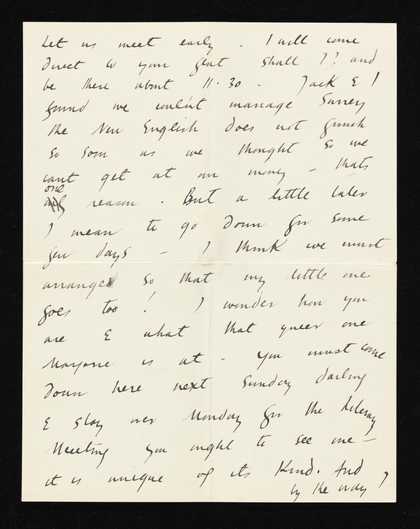 Let us meet early. I will come
Direct to your flat shall I? and
be there about 11.30 - Jack & I
found we couldn't manage Surrey
the New English does not finish
so soon as we thought so we
cant get at our money - thats
one reason. But a little later
I mean to go Down for some
few days - I think we must
arrange so that my little one
goes too! I wonder how you
are & what that queer one
Marjorie is at. You must come
Down here next Sunday darling
& stay over Monday for the
Meeting you ought to see one -
it is unique of its Kind. And
by the way